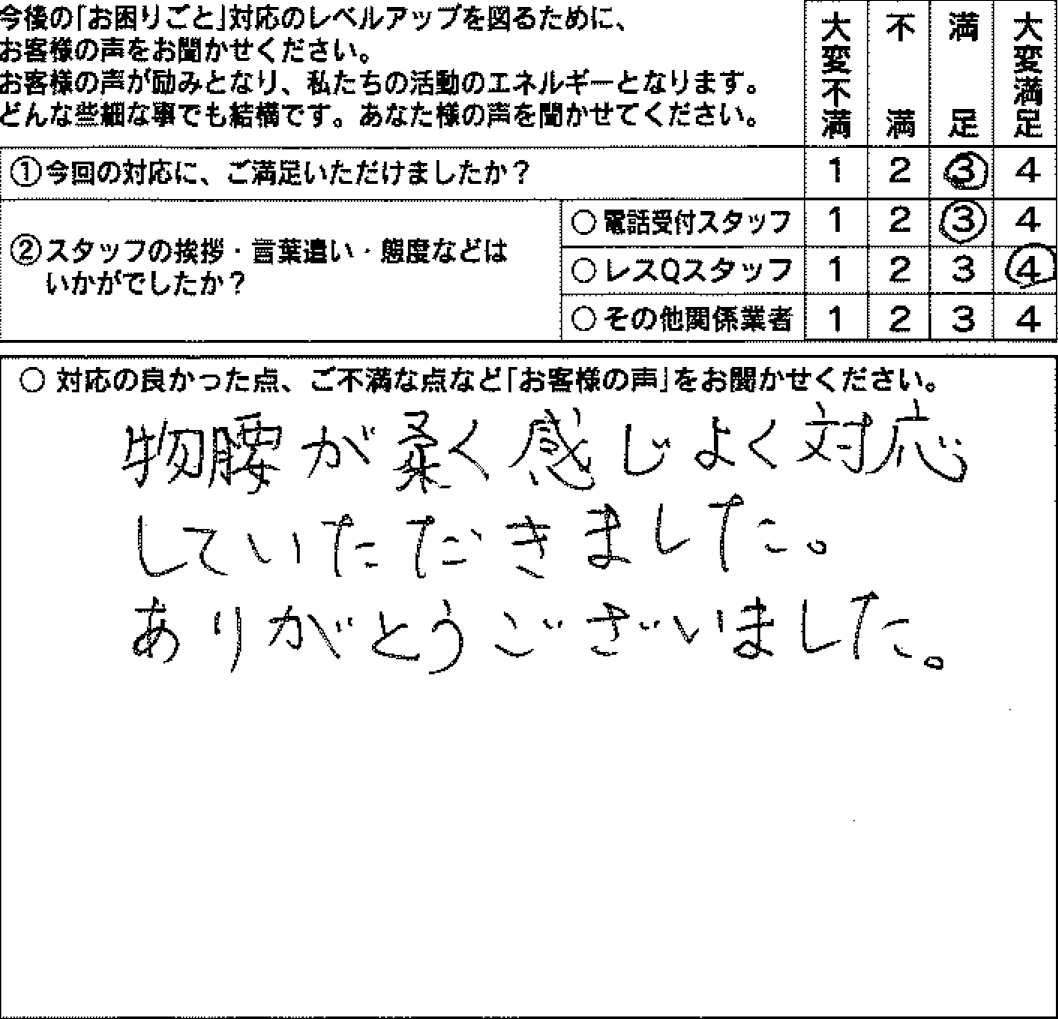 今後の「お困りごと」対応のレベルアップを図るために、
お客様の声をお聞かせください。
お客様の声が励みとなり、私たちの活動のエネルギーとなります。
どんな些細な事でも結構です。あなた様の声を聞かせてください。
大変不満 不満 満足 大変満足
①今回の対応に、ご満足いただけましたか? 1 2 3 4
②スタッフの挨拶・言葉遣い・態度などは
いかがでしたか?
○電話受付スタッフ 1 2 3 4
○レスQスタッフ 1 2 3 4
○その他関係業者 1 2 3 4
○ 対応の良かった点、ご不満な点など「お客様の声」をお聞かせください。
物腰が柔く感じよく対応
していただきました。
ありがとうございました。